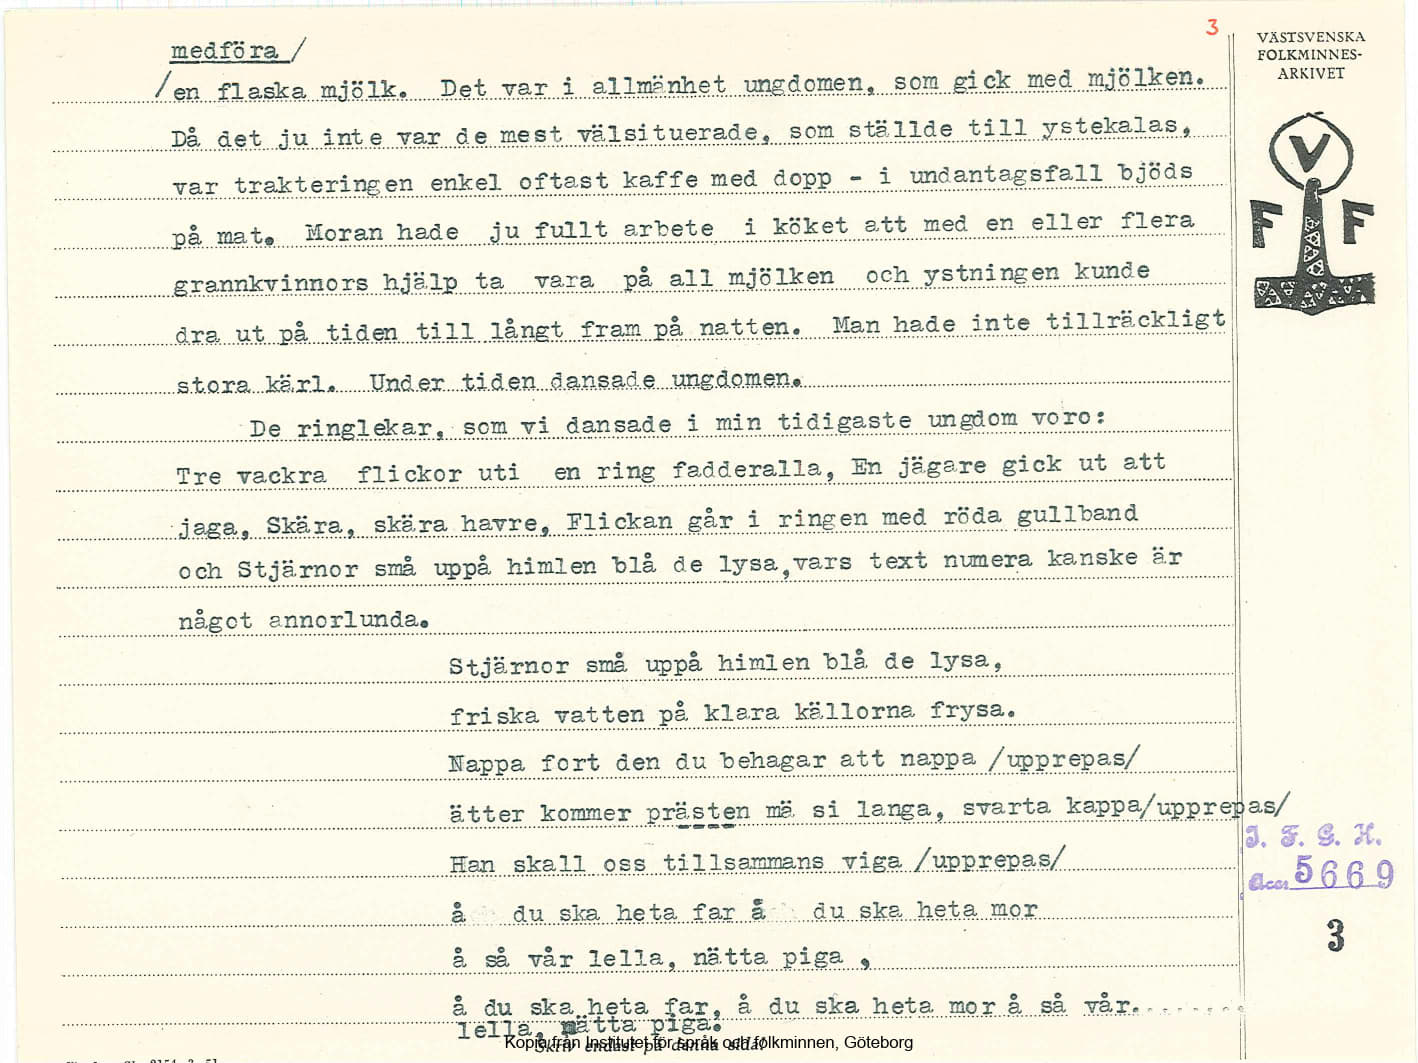 3
VÄSTSVENSKA
FOLKMINNES-
ARKIVET
V
F F
medföra /
/en flaska mjölk. Det var i allmänhet ungdomen, som gick med mjölken.
Då det ju inte var de mest välsituerade, som ställde till ystekalas,
var trakteringen enkel oftast kaffe med dopp - i undantagsfall bjöds
på mat. Moran hade ju fullt arbete i köket att med en eller flera
grannkvinnors hjälp ta vara på all mjölken och ystningen kunde
dra ut på tiden till långt fram på natten. Man hade inte tillräckligt
stora kärl. Under tiden dansade ungdomen.
De ringlekar, som vi dansade i min tidigaste ungdom voro:
Tre vackra flickor uti en ring fadderalla, En jägare gick ut att
jaga, Skära, skära havre, Flickan går i ringen med röda gullband
och Stjärnor små uppå himlen blå de lysa,vars text numera kanske är
något annorlunda.
Stjärnor små uppå himlen blå de lysa,
friska vatten på klara källorna frysa.
Nappa fort den du behagar att nappa /upprepas/
ätter kommer prästen mä si langa, svarta kappa/upprepas/
Han skall oss tillsammans viga /upprepas/
å du ska heta far å du ska heta mor
å så vår lella, nätta piga ,
å du ska heta far, å du ska heta mor å så vår.......
lella, nätta piga.
I. F. G. H.
Acc. 5669
3
Skriv endast på denna sida!
Kopia från Institutet för språk och folkminnen, Göteborg